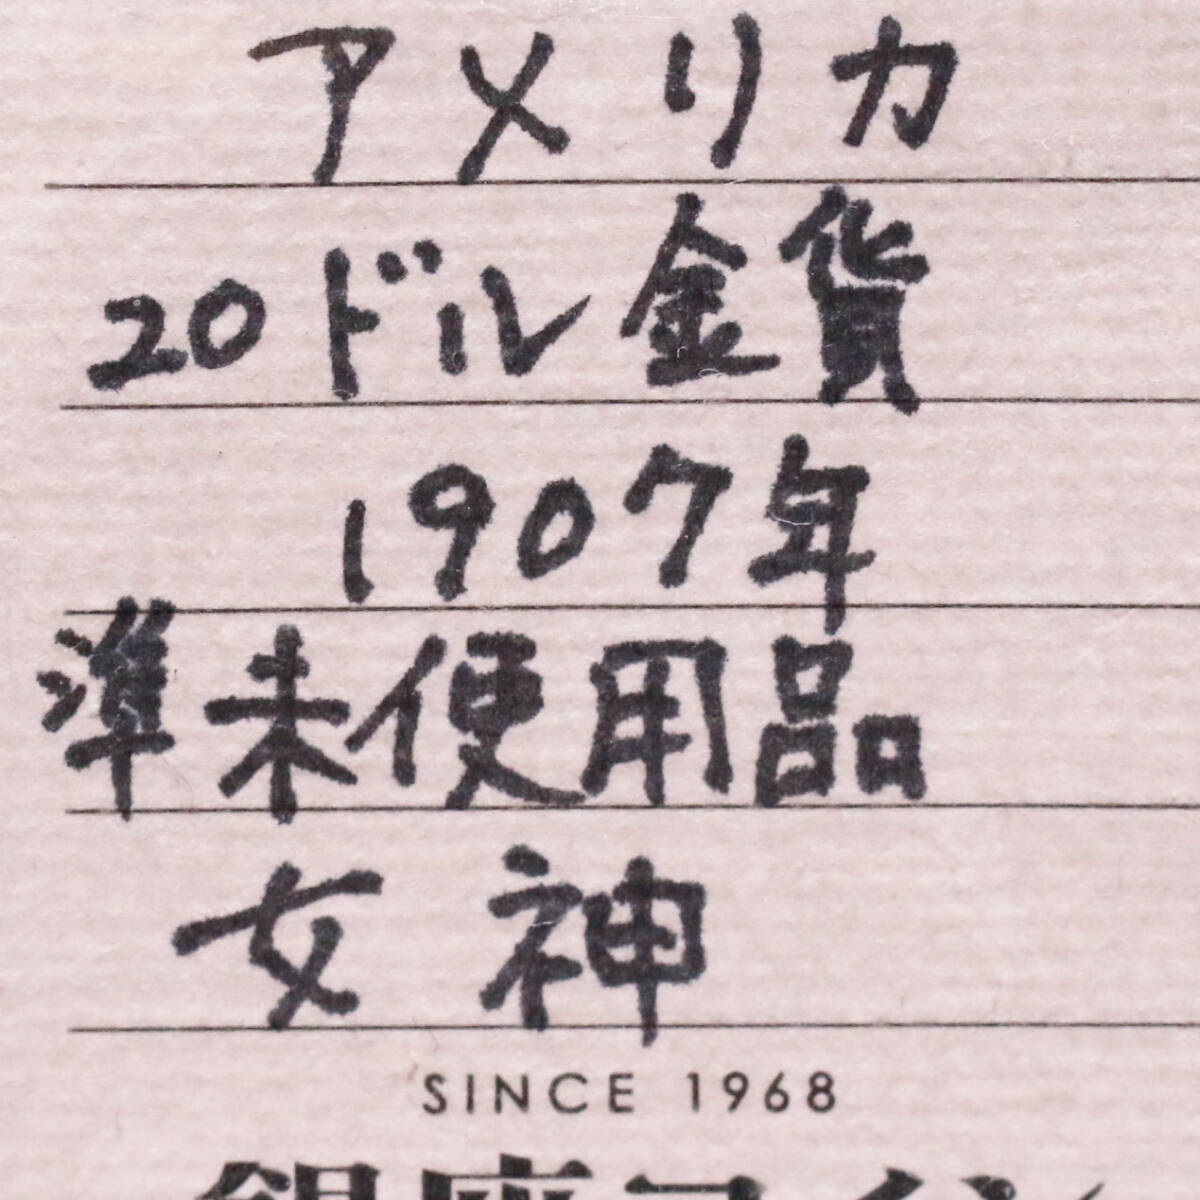 アメリカ
20ドル金貨
1907年
準未使用品
女神
SINCE 1968
銀座コイン